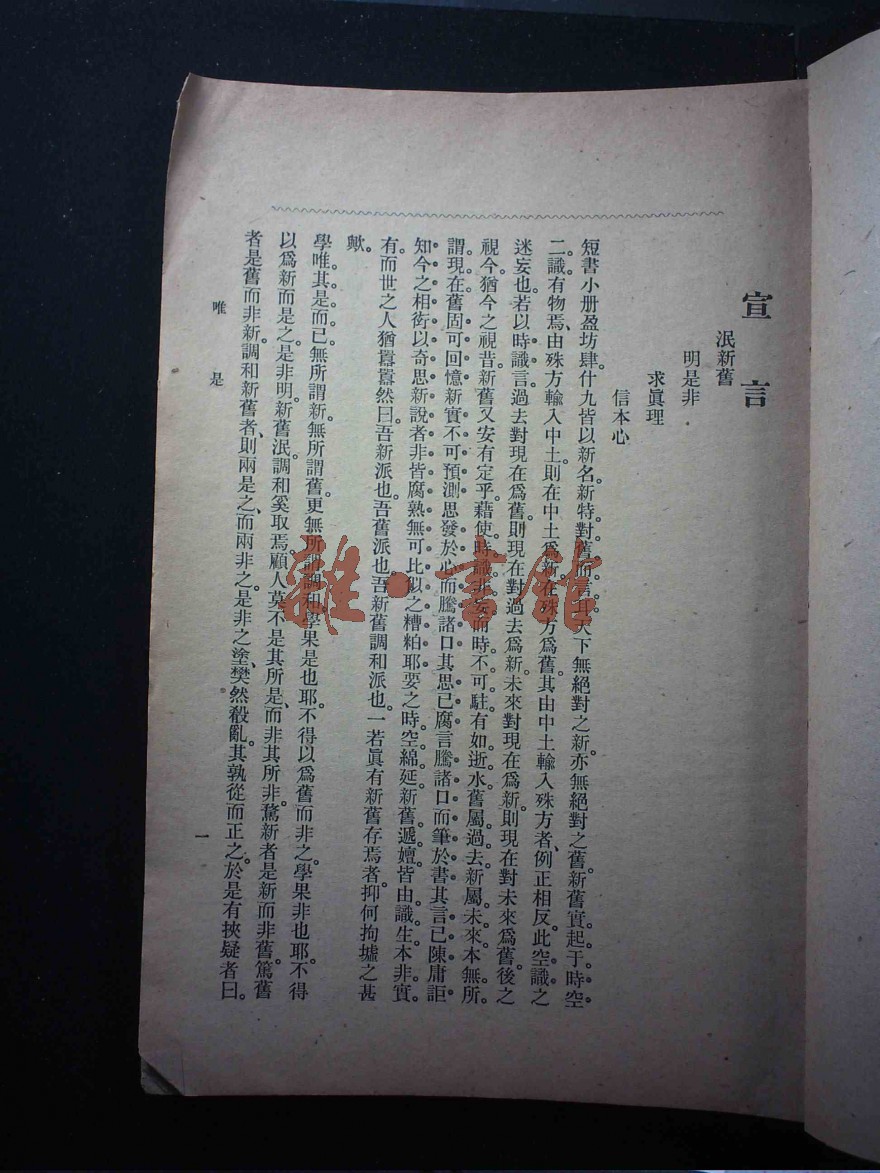 宣言
泯新舊
明是非
求眞理
信本心
短書小册盈坊肆什九皆以新名。新特對舊而言。其天下無絕對之新。亦無絕對之舊。新舊實起于時空
二識。有物焉、由殊方輸入中土。則在中土爲新。在殊方爲舊。其由中土輸入殊方者、例正相反。此空識之
迷妄也。若以時識言。過去對現在爲舊。則現在對過去爲新。未來對現在爲新。則現在對未來爲舊。後之
視今。猶今之視昔。新舊又安有定乎。藉使時識非妄。而時不可駐。有如逝水。舊屬過去。新屬未來。本無所
謂現在。舊固可回憶。新實不可預測。思發於心而騰諸口。其思已腐。言騰諸口而筆於書。其言已陳。庸詎
知今之相衒以奇思新說者。非皆腐熟無可比似之糟粕耶。要之時空綿延。新舊遞嬗。皆由識生。本非實
有。而世之人猶囂囂然曰。吾新派也。吾舊派也。吾新舊調和派也。一若眞有新舊存焉者。抑何拘墟之甚
歟。
學唯其是而已。無所謂新。無所謂舊。更無所謂調和。學果是也耶。不得以爲舊而非之。學果非也耶。不得
以爲新而是之。是非明。新舊泯。調和奚取焉。顧人莫不是其所是、而非其所非。驁新者是新而非舊。篤舊
者是舊而非新。調和新舊者、則兩是之、而兩非之。是非之塗、樊然殽亂。其孰從而正之。於是有挾疑者曰。
唯是
一
雜·書館